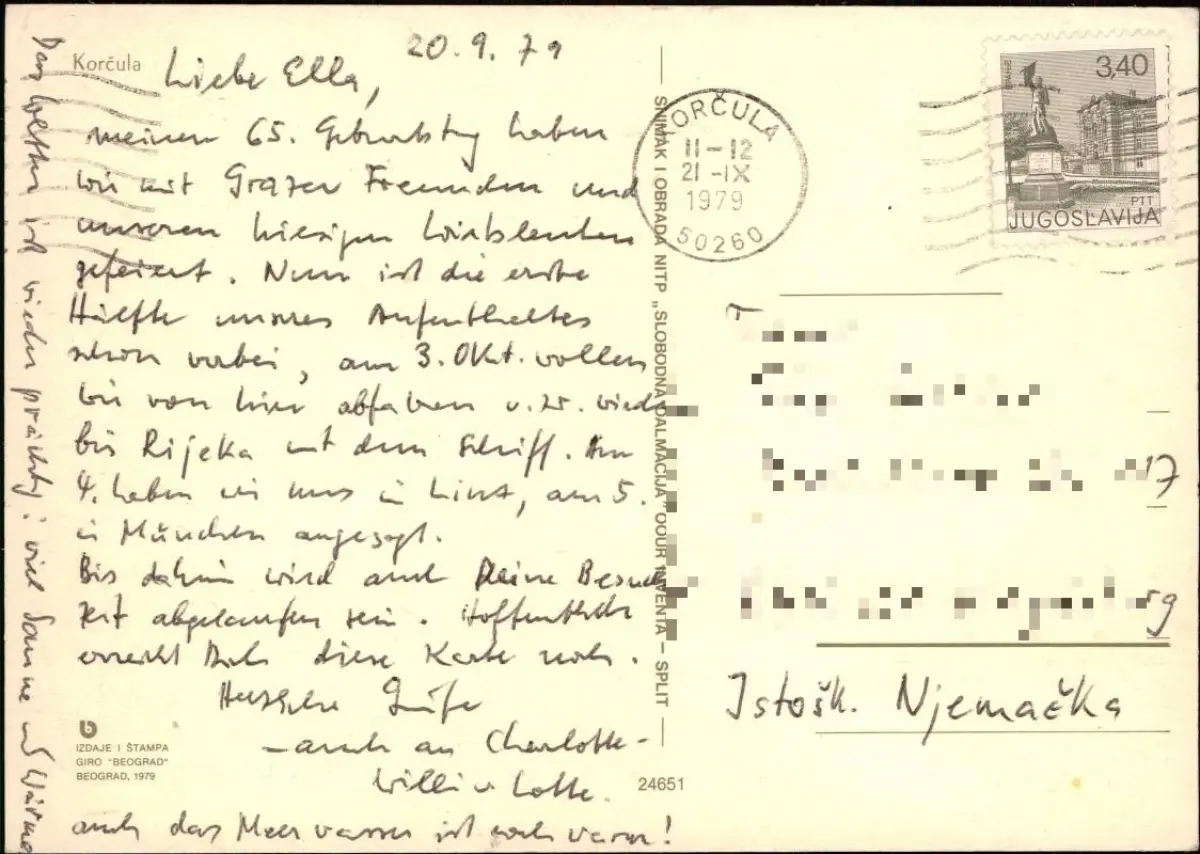 Korčula
20.9.79
Liebe Ella,
meinen 65. Geburtstag haben
wir mit Grazer Freunden und
unseren hiesigen Wirtsleuten
gefeiert. Nun ist die erste
Hälfte unseres Aufenthaltes
schon vorbei, am 3. Okt. wollen
wir von hier abfahren u. zw. wieder
bis Rijeka mit dem Schiff. Am
4. haben wir uns in Linz, am 5.
in München angesagt.
Bis dahin wird auch Deine Besuchs
zeit abgelaufen sein. Hoffentlich
erreicht Dich diese Karte noch.
Herzliche Grüße
- auch an Charlotte -
Willi u. Lotte.
auch das Meerwasser ist noch warm!
Das Wetter ist wieder prächtig: viel Sonne und Wärme
IZDAJE I ŠTAMPA
GIRO "BEOGRAD"
BEOGRAD, 1979
SNIMAK I OBRADA NITP „SLOBODNA DALMACIJA" OOUR – SPLIT
24651
KORČULA
11-12
21-IX
1979
50260
3,40
PTT
JUGOSLAVIJA
17
59
Istočk. Njemačka